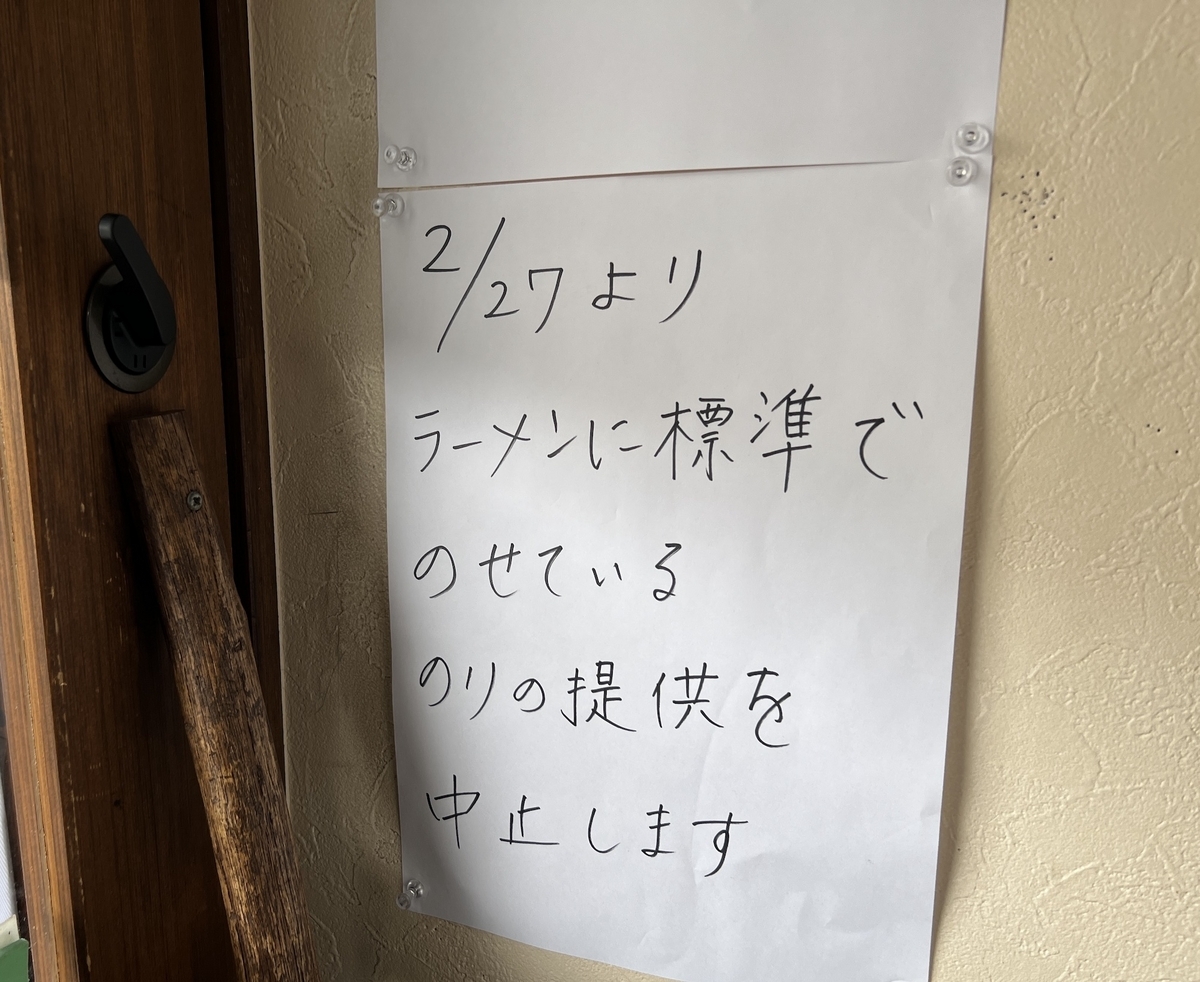 2/27より
ラーメンに標準で
のせている
のりの提供を
中止します